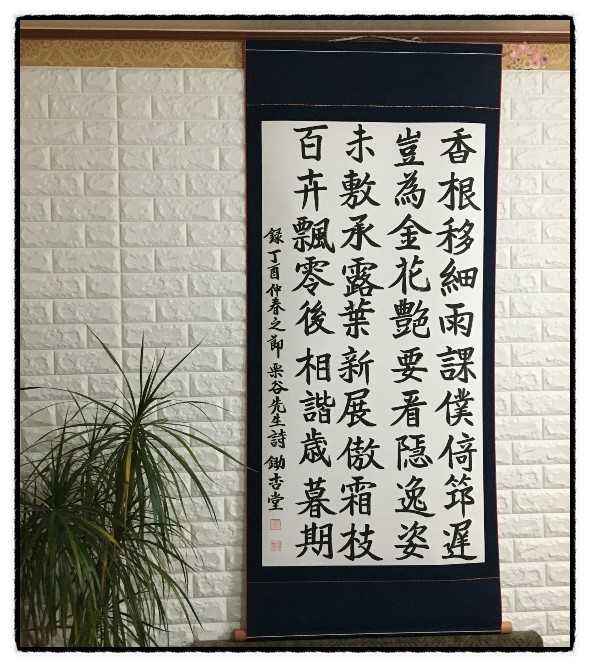 香根移細雨課僕倚筇遲
豈為金花艶要看隠逸姿
未敷承露葉新展傲霜枝
百卉飄零後相諧歳暮期
録丁酉仲春之節 栗谷先生詩 鋤杏堂